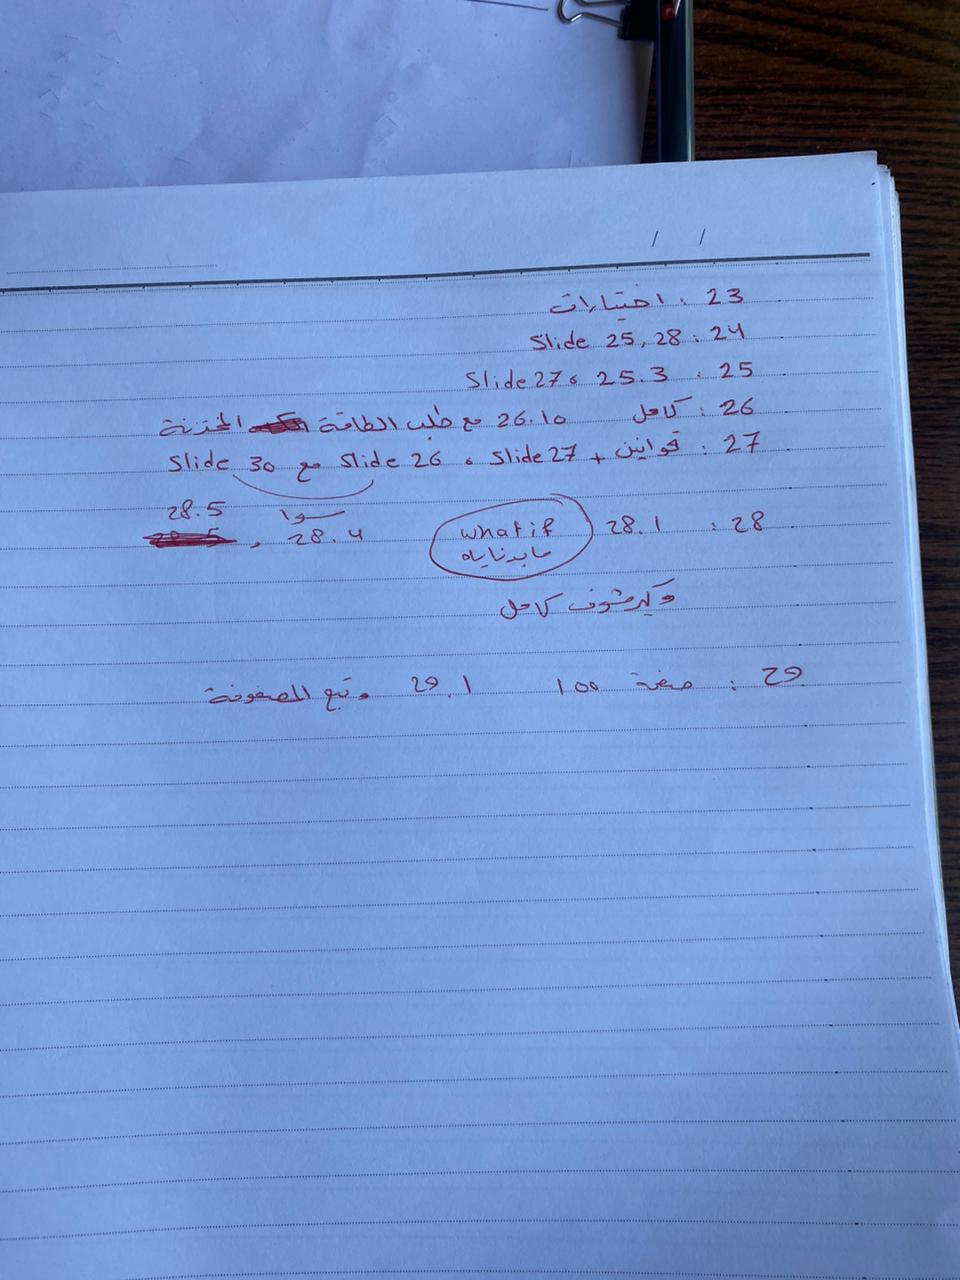 / /
23 : اختيارات
24 : Slide 25, 28
25 : 25.3 ، Slide 27
26 : كامل 26.10 مع طلب الطاقة المختزنة
27 : قوانين + Slide 27 ، Slide 26 مع Slide 30
سوا 28.5
28 : 28.1 what if 28.4 ,
ما بدنا ياه
وكيرشوف كامل
29 : صفحة 100 29.1 وتبع المصفوفة